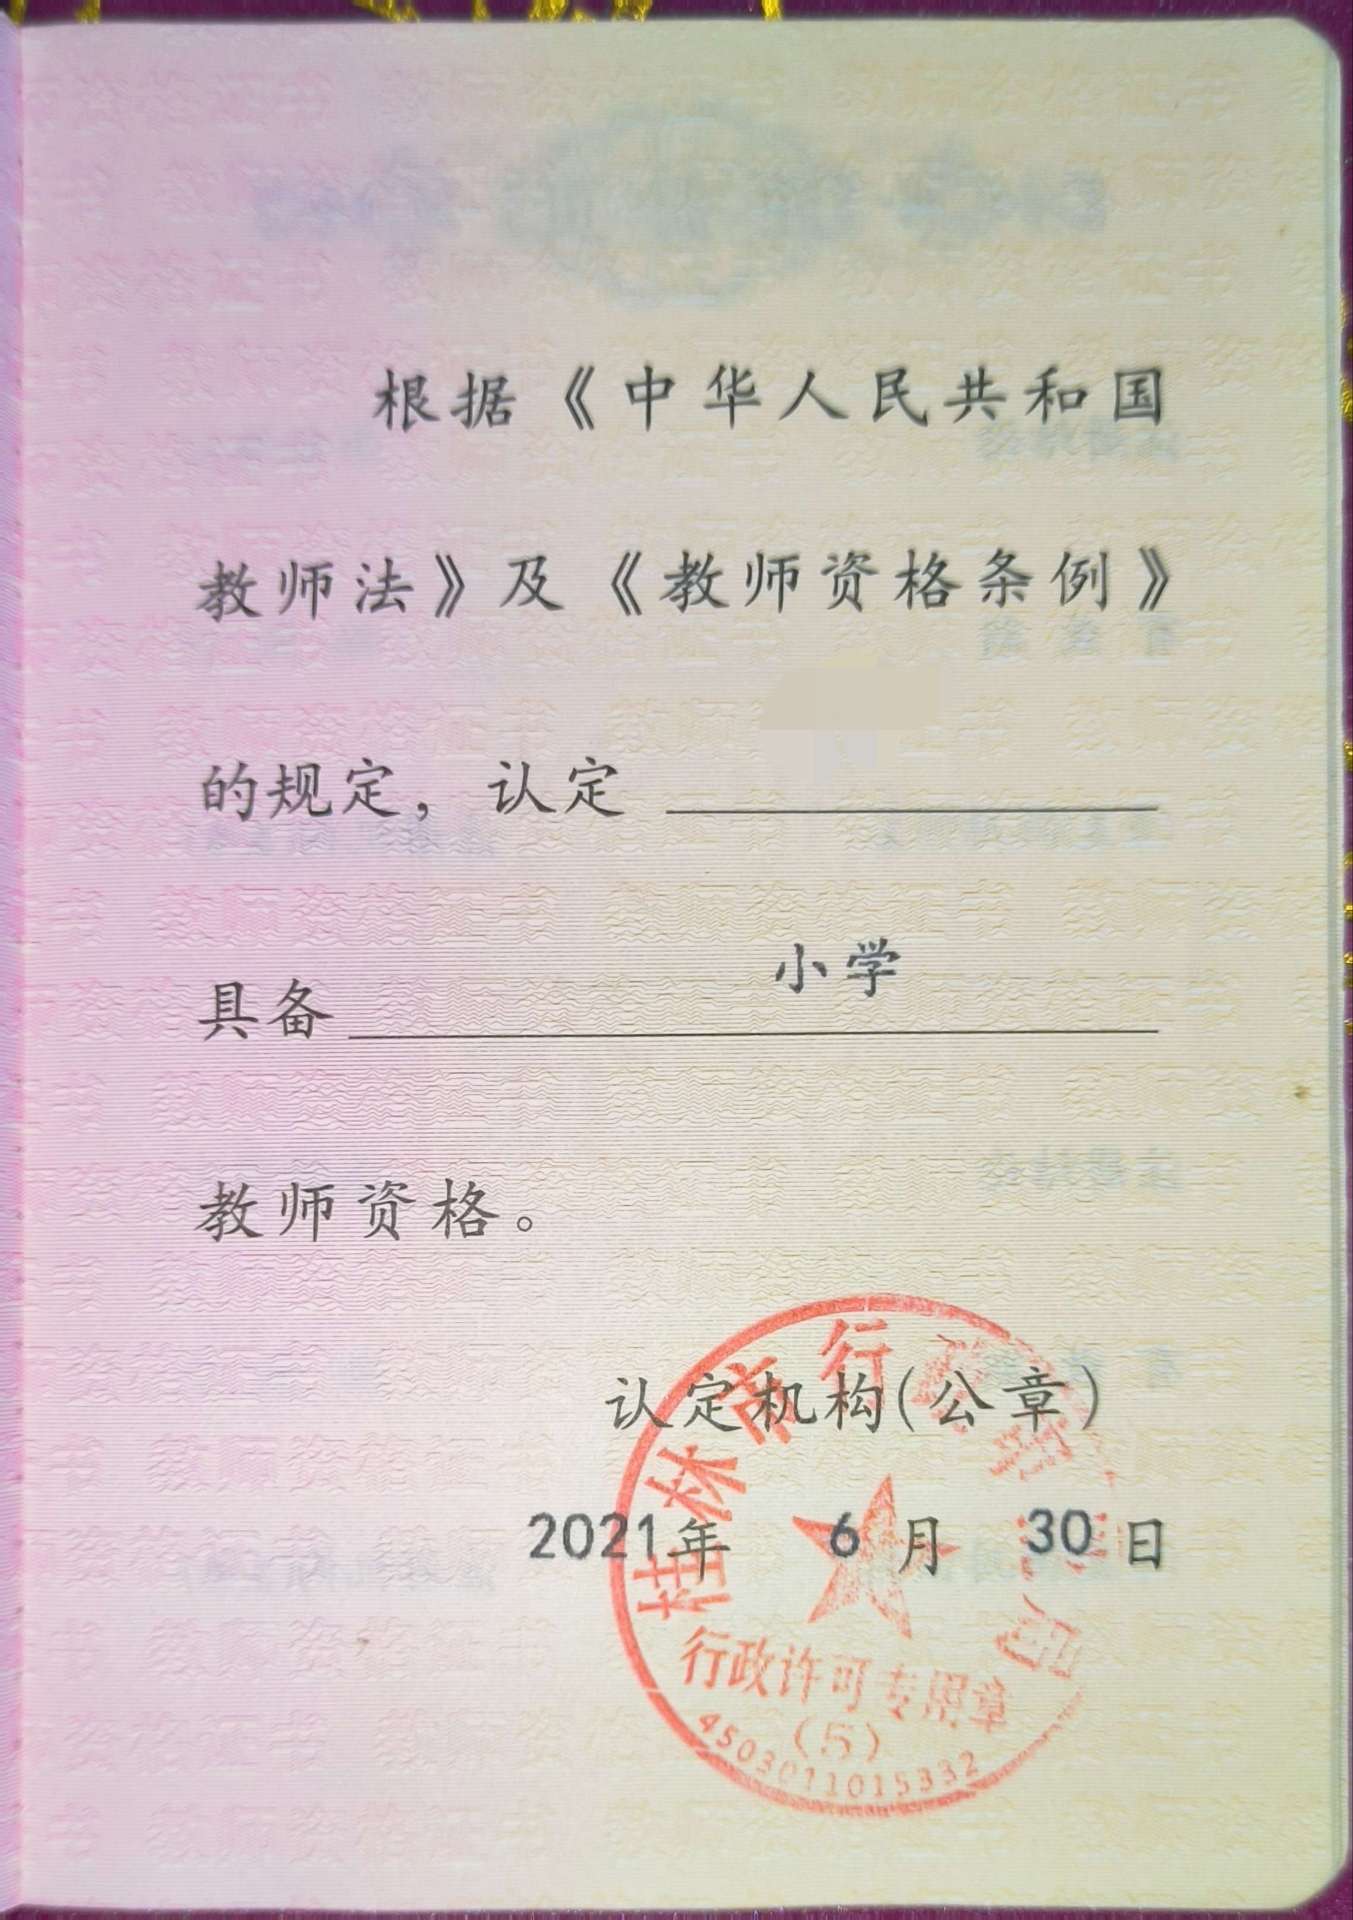 根据《中华人民共和国
教师法》及《教师资格条例》
的规定，认定
具备 小学
教师资格。
认定机构(公章)
2021年 6月 30日
桂林市行政审批局
行政许可专用章
(5)
4503011015332